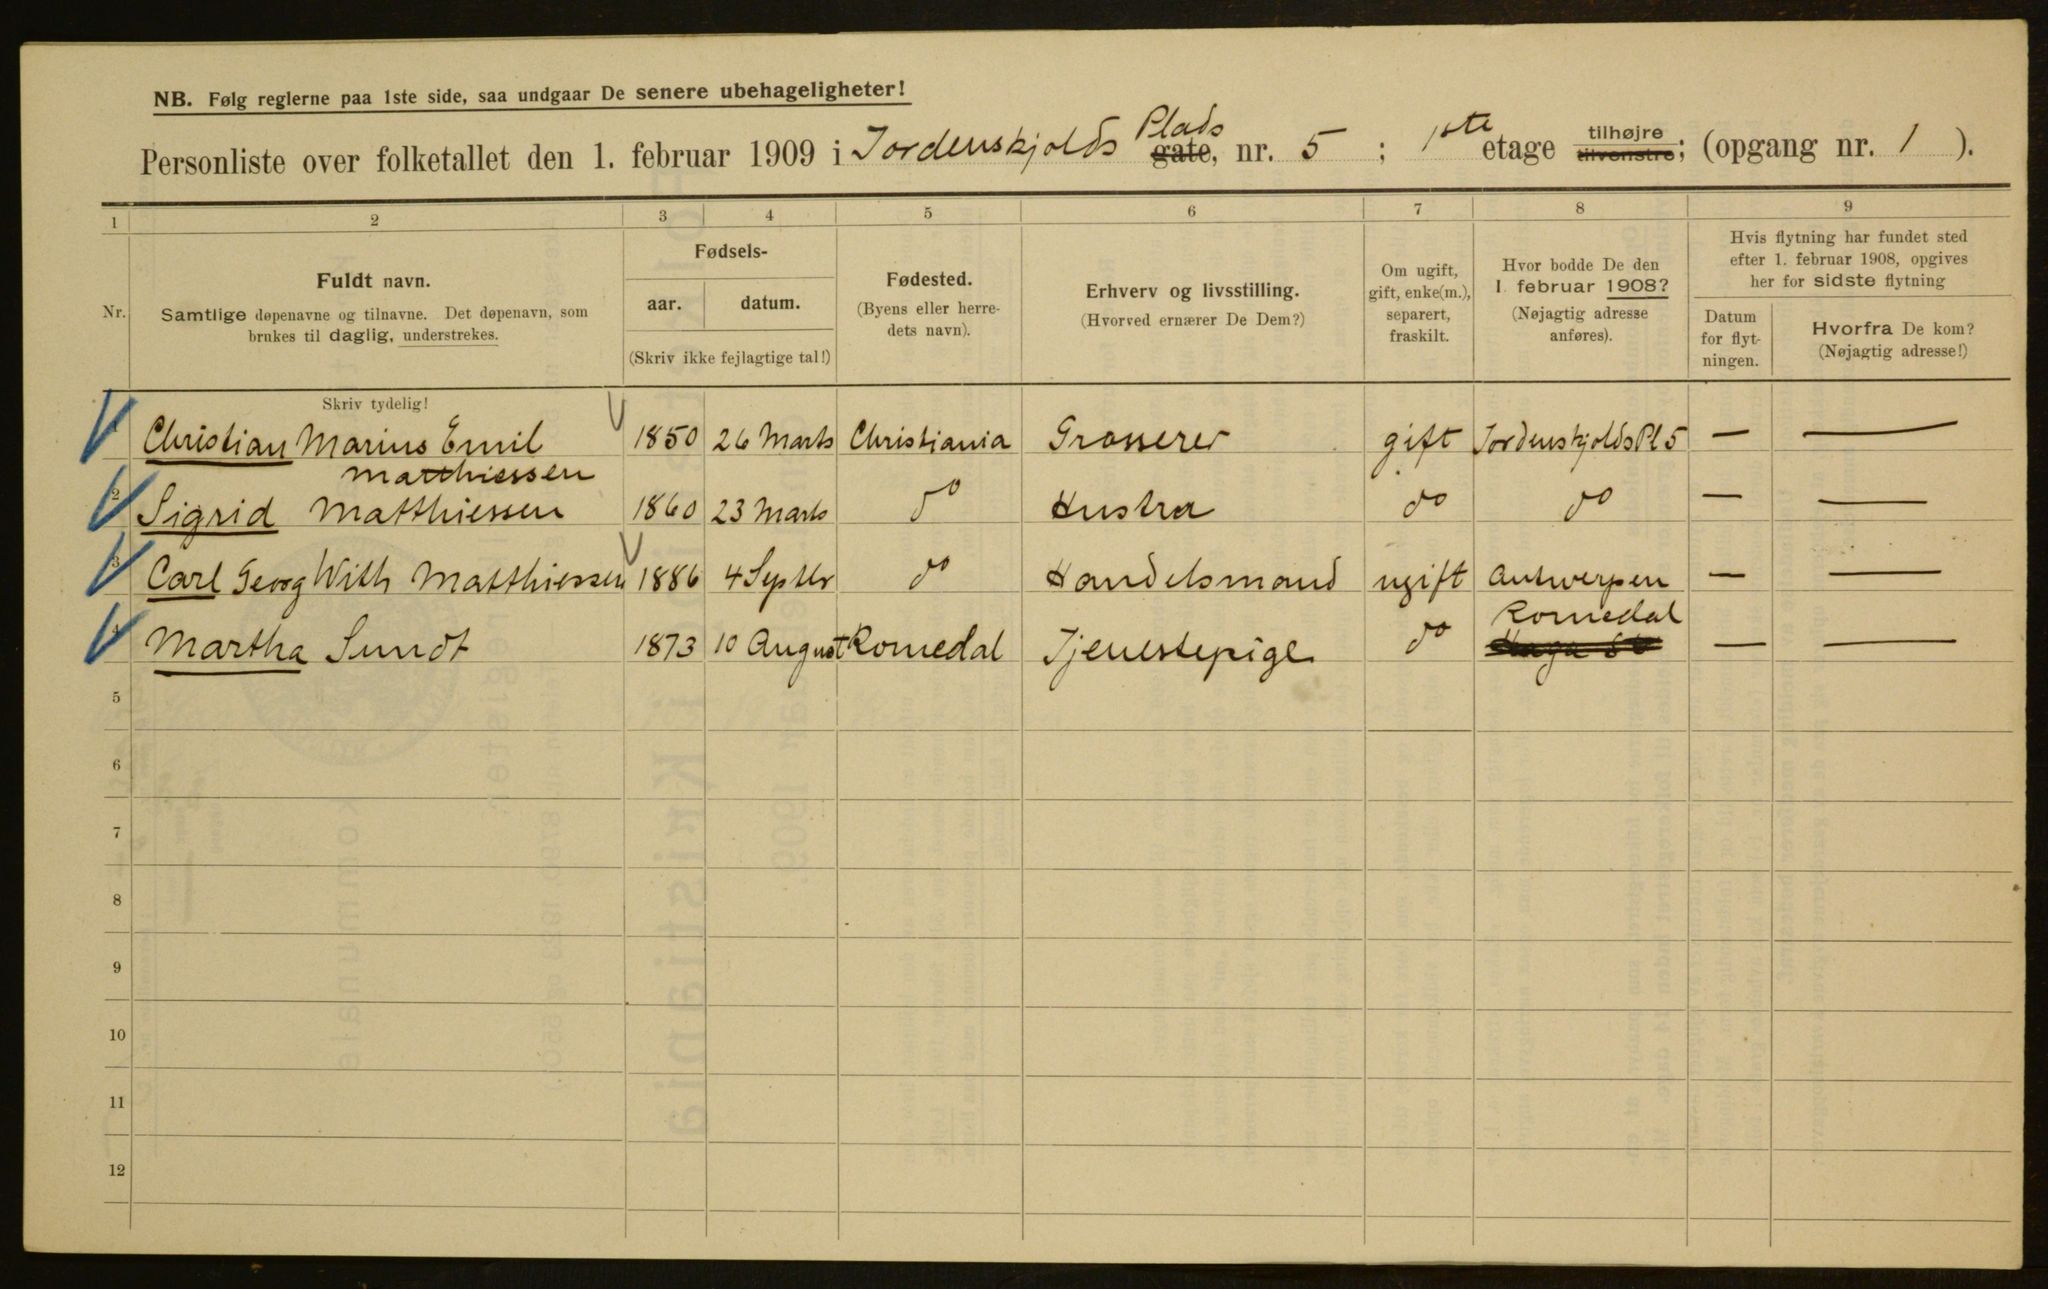 NB. Følg reglerne paa 1ste side, saa undgaar De senere ubehageligheter!
Personliste over folketallet den 1. februar 1909 i Tordenskjolds Plads gate, nr. 5 ; 1ste etage tilhøjre tilvenstre; (opgang nr. 1 ).
1 2 3 4 5 6 7 8 9
Nr.
Fuldt navn.
Samtlige døpenavne og tilnavne. Det døpenavn, som
brukes til daglig, understrekes.
Fødsels-
aar. datum.
(Skriv ikke fejlagtige tal!)
Fødested.
(Byens eller herre-
dets navn).
Erhverv og livsstilling.
(Hvorved ernærer De Dem?)
Om ugift,
gift, enke(m.),
separert,
fraskilt.
Hvor bodde De den
1. februar 1908?
(Nøjagtig adresse
anføres).
Hvis flytning har fundet sted
efter 1. februar 1908, opgives
her for sidste flytning
Datum
for flyt-
ningen.
Hvorfra De kom?
(Nøjagtig adresse!)
Skriv tydelig!
Christian Marius Emil 1850 26 Marts Christiania Grosserer gift Tordenskjolds Pl 5 — —
Matthiessen
2 Sigrid Matthiessen 1860 23 Marts do Hustru do do — —
3 Carl Georg With Matthiessen 1886 4 Septbr do Handelsmand ugift Antwerpen — —
Romedal
4 Martha Sundt 1873 10 August Romedal Tjenestepige do — —
5
6
7
8
9
10
11
12